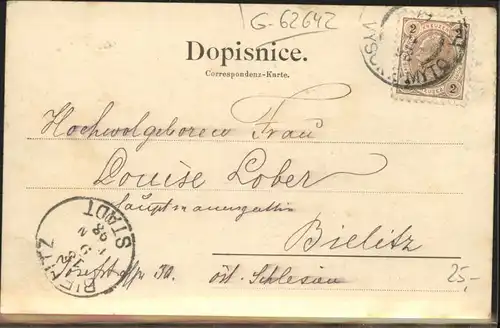 G-62642
Dopisnice.
Correspondenz-Karte.
2 KREUZER 2
Hochwolgeboren Frau
Louise Lober
Hauptmannsgattin
Bielitz
30. öst. Schlesien
BIELITZ STADT
98
25,-